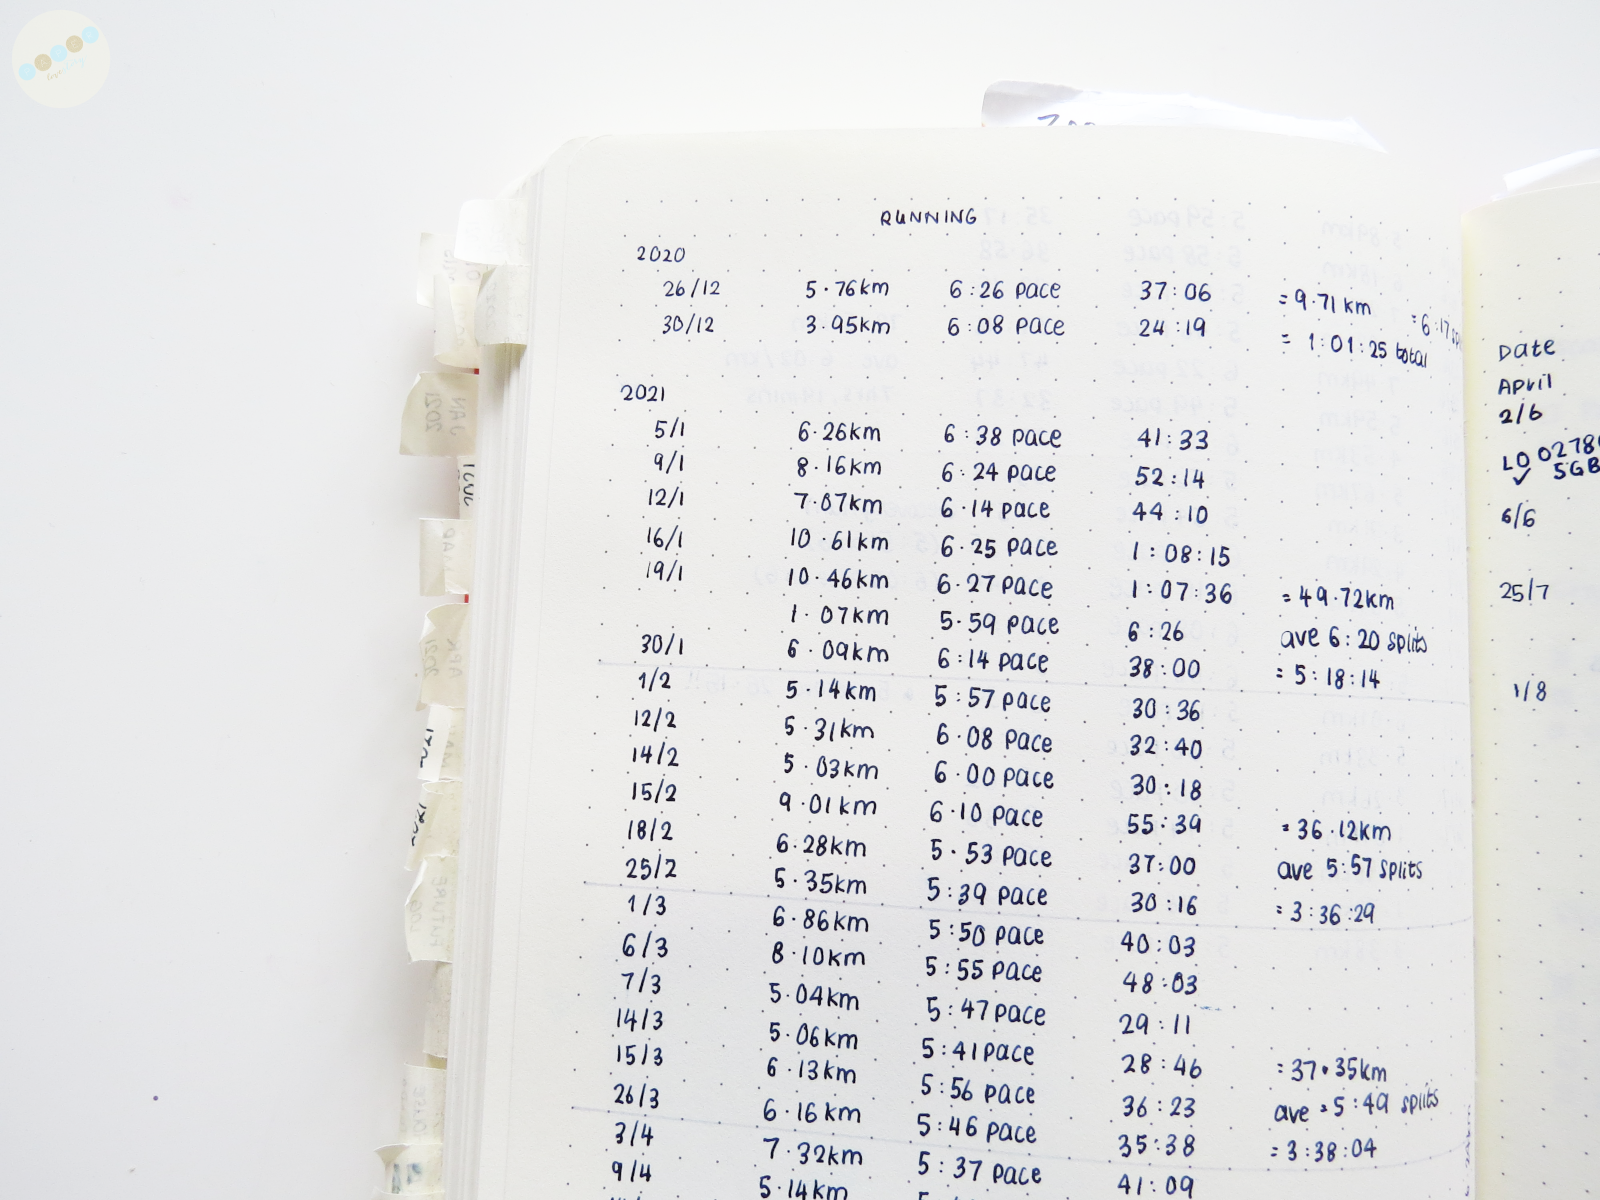 RUNNING
2020
26/12 5.76km 6:26 pace 37:06 = 9.71km
30/12 3.95km 6:08 pace 24:19 = 1:01:25 total = 6:17
2021
5/1 6.26km 6:38 pace 41:33
9/1 8.16km 6:24 pace 52:14
12/1 7.07km 6.14 pace 44:10
16/1 10.61km 6.25 pace 1:08:15
19/1 10.46km 6:27 pace 1:07:36 = 49.72km
1.07km 5.59 pace 6:26 ave 6:20 splits
30/1 6.09km 6:14 pace 38:00 = 5:18:14
1/2 5.14km 5:57 pace 30:36
12/2 5.31km 6.08 pace 32:40
14/2 5.03km 6.00 pace 30:18
15/2 9.01km 6.10 pace 55:39 = 36.12km
18/2 6.28km 5.53 pace 37:00 ave 5:57 splits
25/2 5.35km 5:39 pace 30:16 = 3:36:29
1/3 6.86km 5:50 pace 40:03
6/3 8.10km 5:55 pace 48:03
7/3 5.04km 5:47 pace 29:11
14/3 5.06km 5:41 pace 28:46 = 37.35km
15/3 6.13km 5:56 pace 36:23 ave = 5:49 splits
26/3 6.16km 5:46 pace 35:38 = 3:38:04
3/4 7.32km 5:37 pace 41:09
9/4 5.14km
Date
April
2/6
LO 0278
5GB
6/6
25/7
1/8
JAN
2021
MAR
APR
2021
FUTURE
LOG